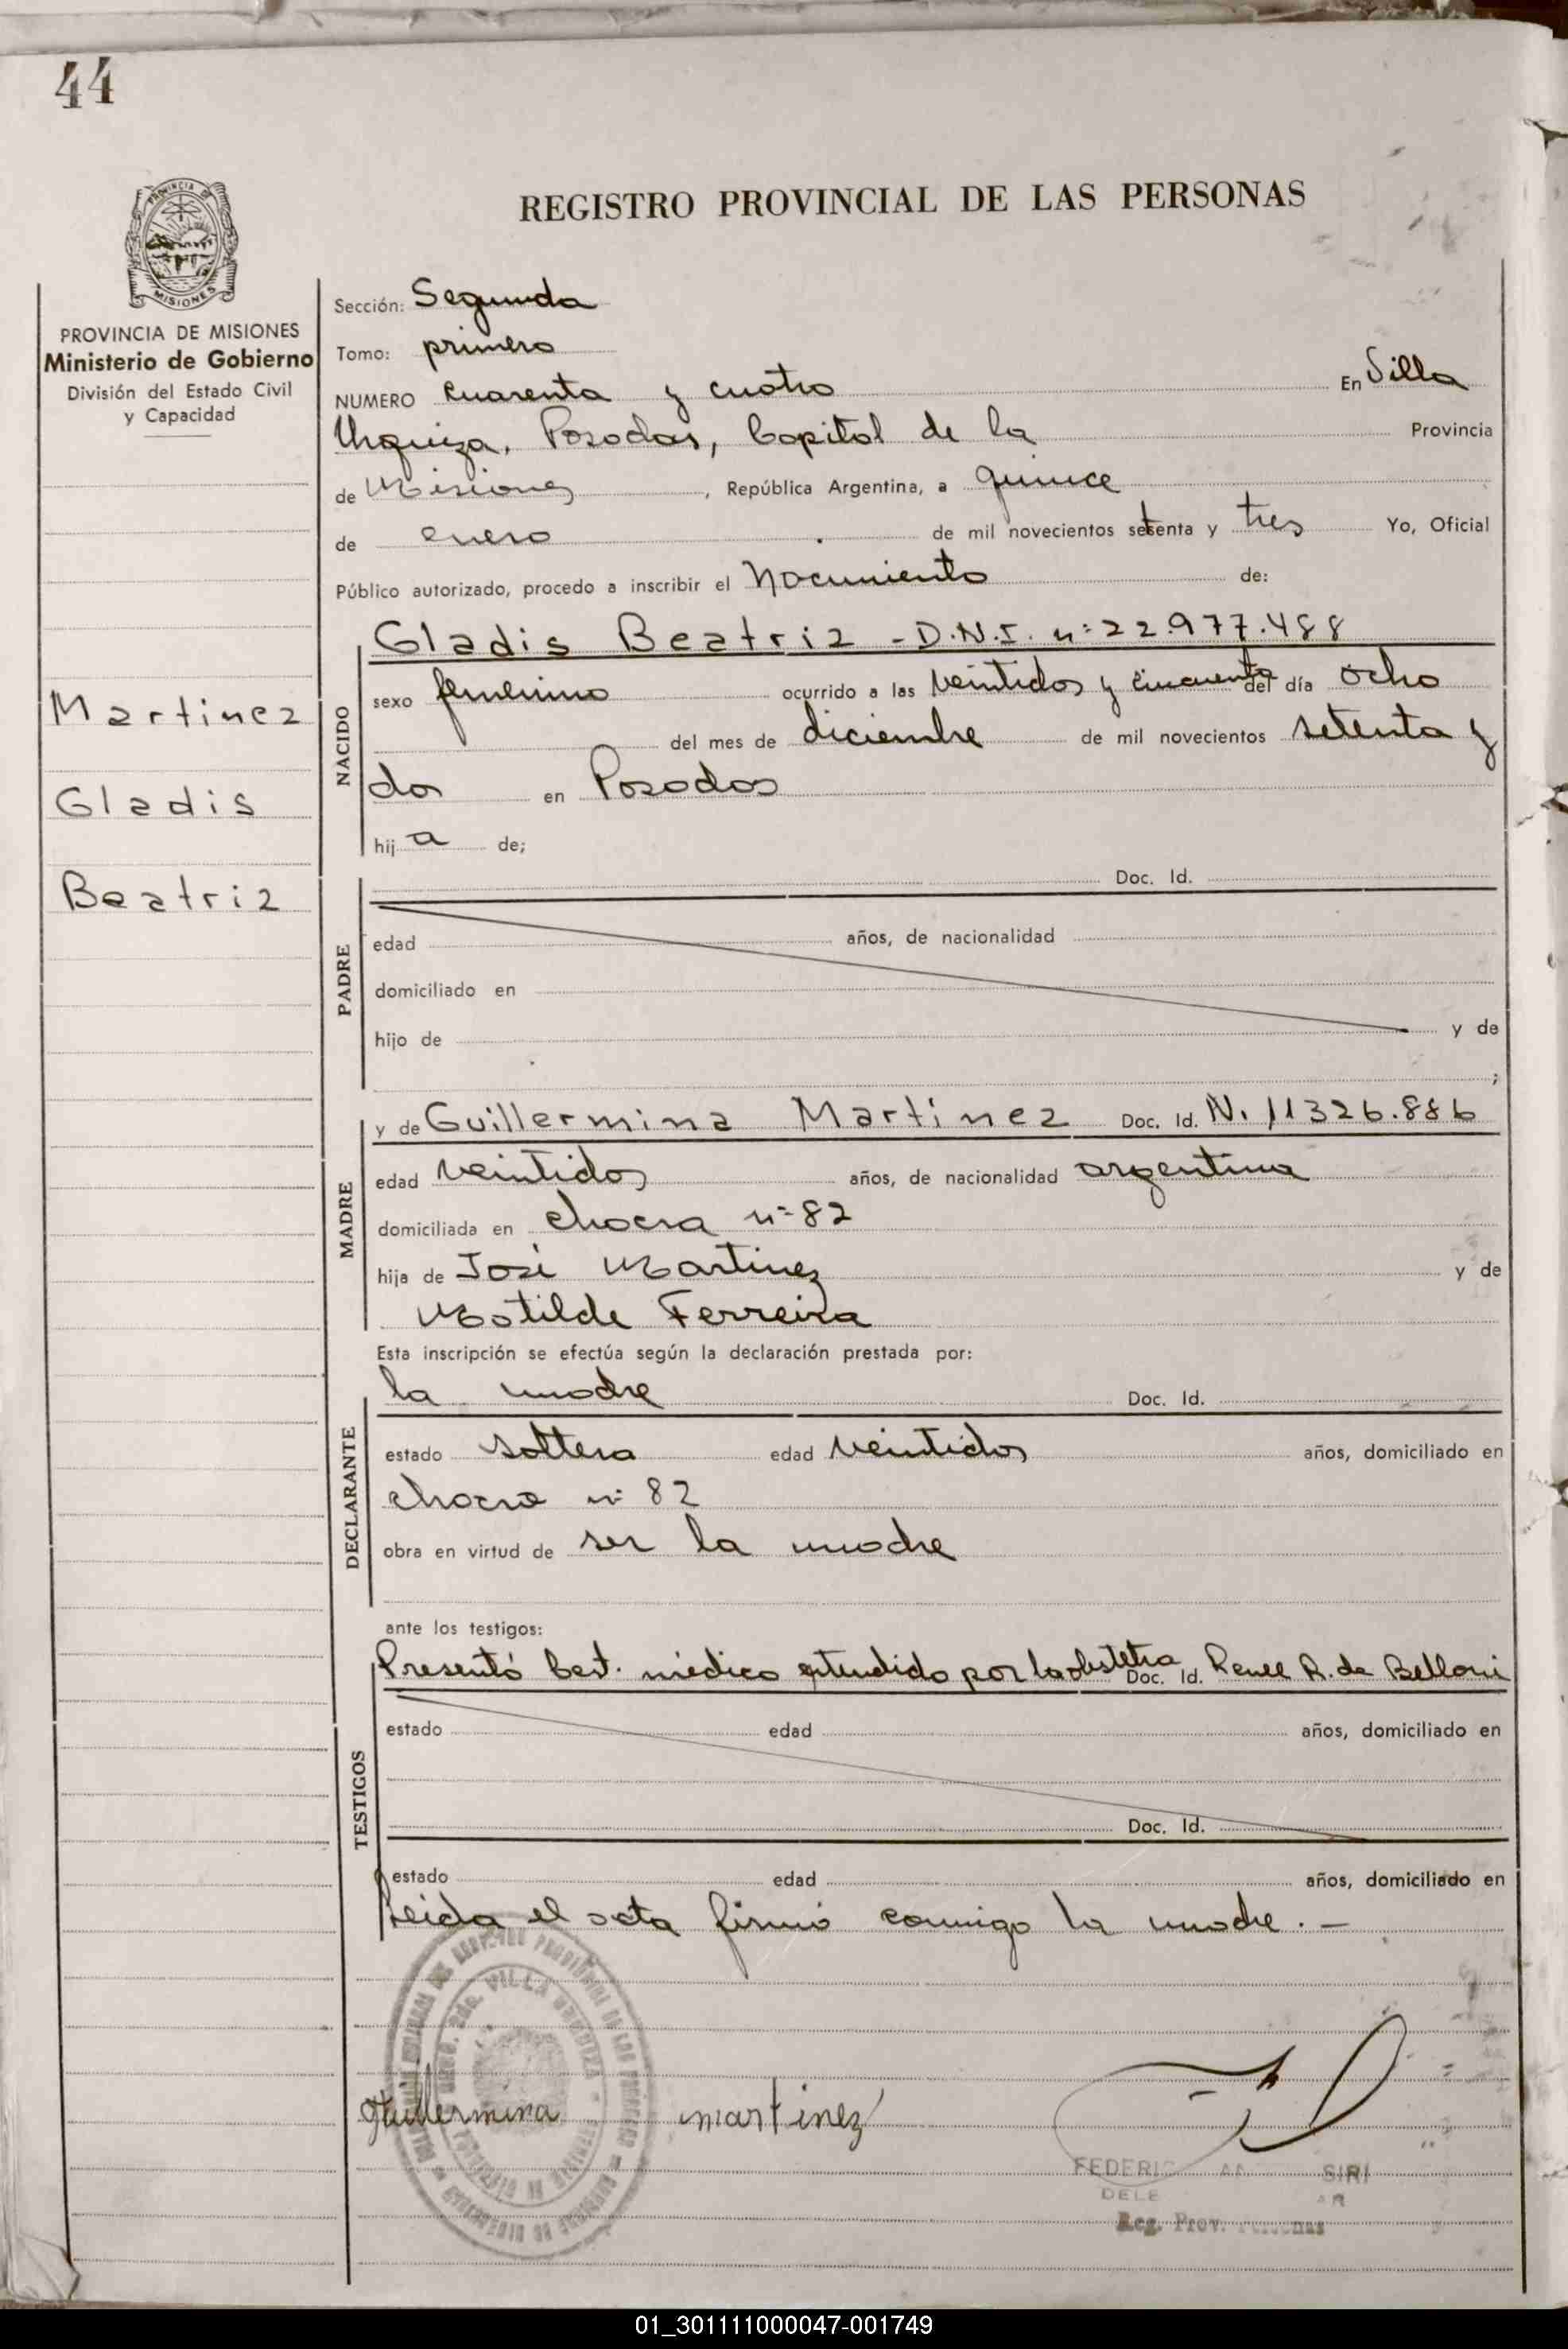 44
PROVINCIA DE
MISIONES
REGISTRO PROVINCIAL DE LAS PERSONAS
PROVINCIA DE MISIONES
Ministerio de Gobierno
División del Estado Civil
y Capacidad
Martinez
Gladis
Beatriz
Sección: Segunda
Tomo: primero
NUMERO cuarenta y cuatro En Villa
Urquiza, Posadas, Capital de la Provincia
de Misiones, República Argentina, a quince
de enero de mil novecientos setenta y tres Yo, Oficial
Público autorizado, procedo a inscribir el Nacimiento de:
NACIDO
Gladis Beatriz - D.N.I. nº 22.977.488
sexo femenino ocurrido a las veintidos y cincuenta del día ocho
del mes de diciembre de mil novecientos setenta y
dos en Posadas
hij a de;
PADRE
Doc. Id.
edad años, de nacionalidad
domiciliado en
hijo de y de
;
MADRE
y de Guillermina Martinez Doc. Id. N. 11326.886
edad veintidos años, de nacionalidad argentina
domiciliada en chacra nº 82
hija de José Martinez y de
Matilde Ferreira
Esta inscripción se efectúa según la declaración prestada por:
DECLARANTE
la madre Doc. Id.
estado soltera edad veintidos años, domiciliado en
chacra nº 82
obra en virtud de ser la madre
ante los testigos:
TESTIGOS
Presentó Cert. médico extendido por la obstetra Doc. Id. Renee R. de Belloni
estado edad años, domiciliado en
Doc. Id.
estado edad años, domiciliado en
Leida el acta firmó conmigo la madre. -
VILLA URQUIZA
Guillermina martinez
SIRI
DELE
Reg. Prov.
01_301111000047-001749